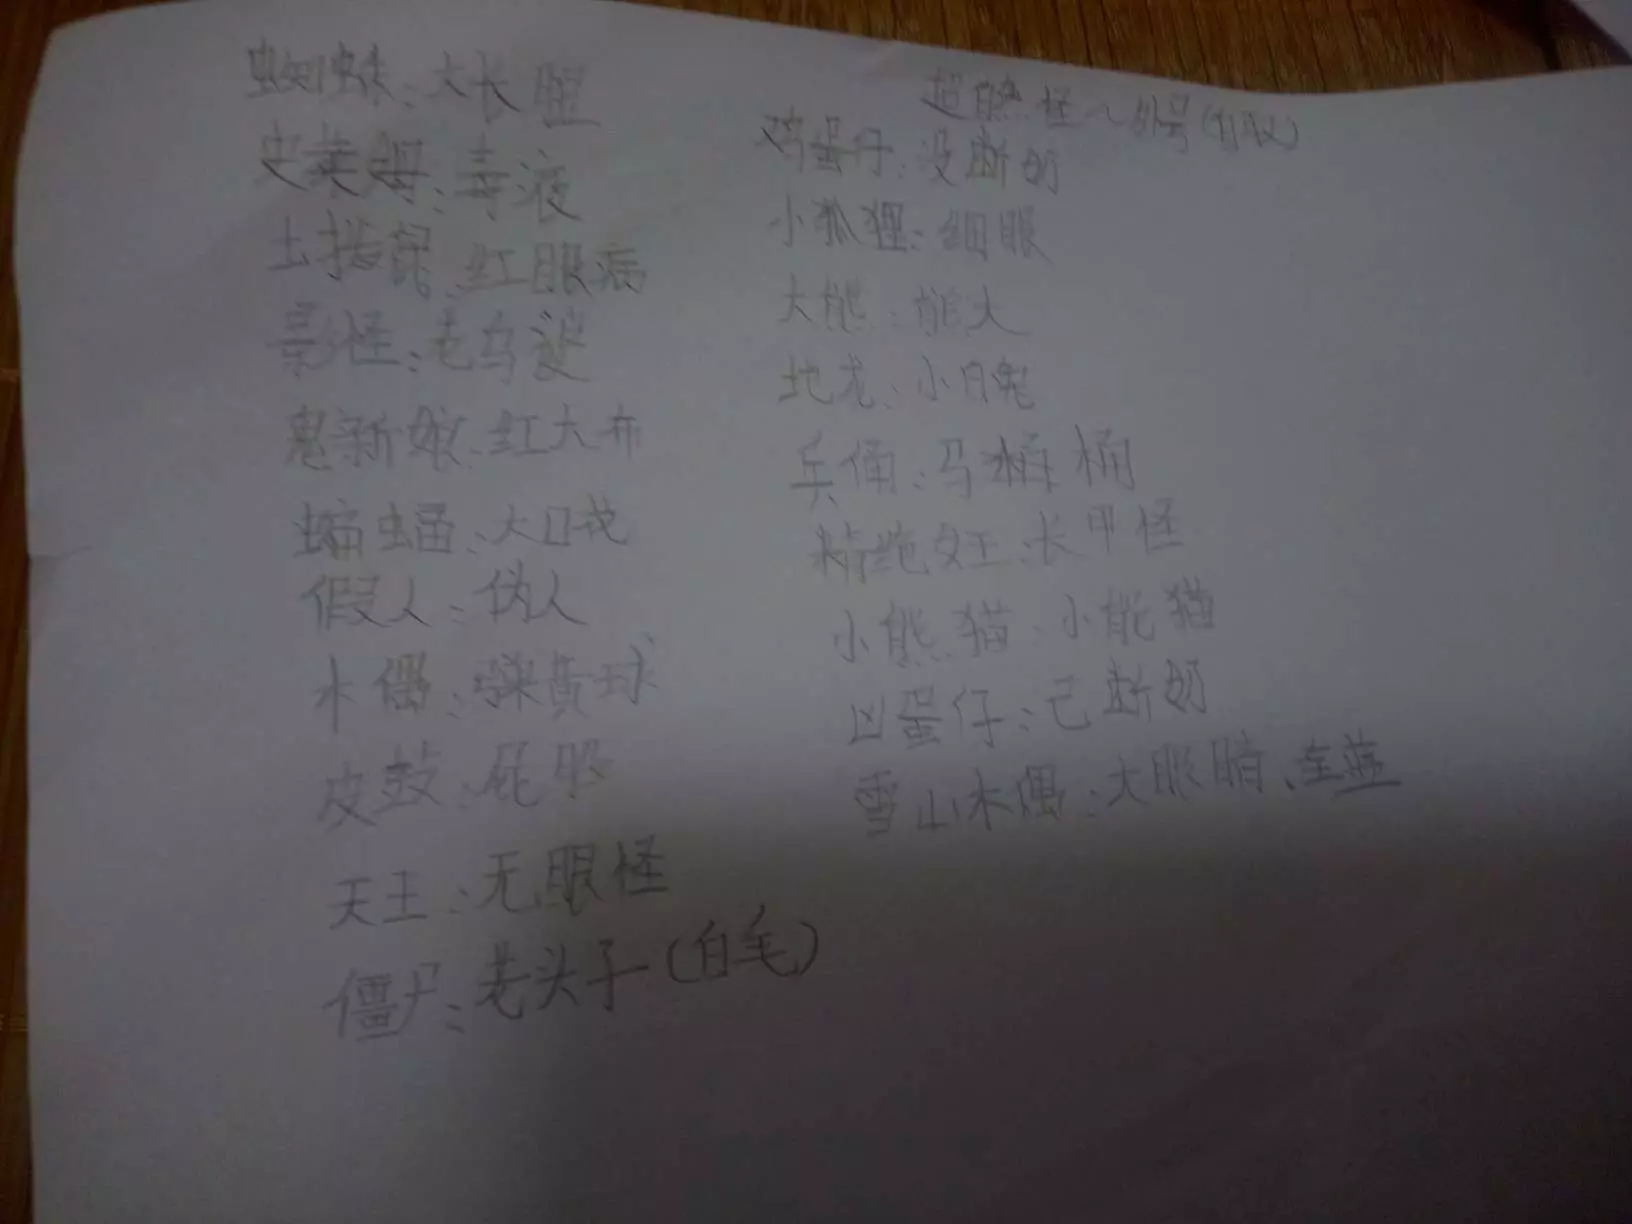 超自然怪~外号(自取)
鸡蛋仔:没断奶
小狐狸:细眼
大熊:能大
地龙:小白鬼
兵俑:马桶桶
精绝女王:长甲怪
小熊猫:小能猫
凶蛋仔:已断奶
雪山木偶:大眼睛、全蓝
蜘蛛:大长腿
史莱姆:毒液
土拨鼠:红眼病
影怪:老乌婆
鬼新娘:红大布
蝙蝠:大口花
假人:伪人
木偶:弹黄球
皮鼓:屁股
天王:无眼怪
僵尸:老头子(白毛)